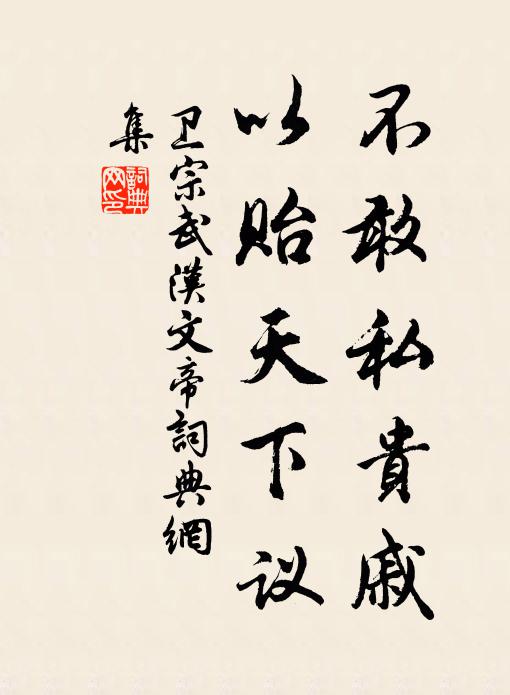 不敢私貴戚
以贻天下议
卫宗武漢文帝詞典網
集
詞典网印